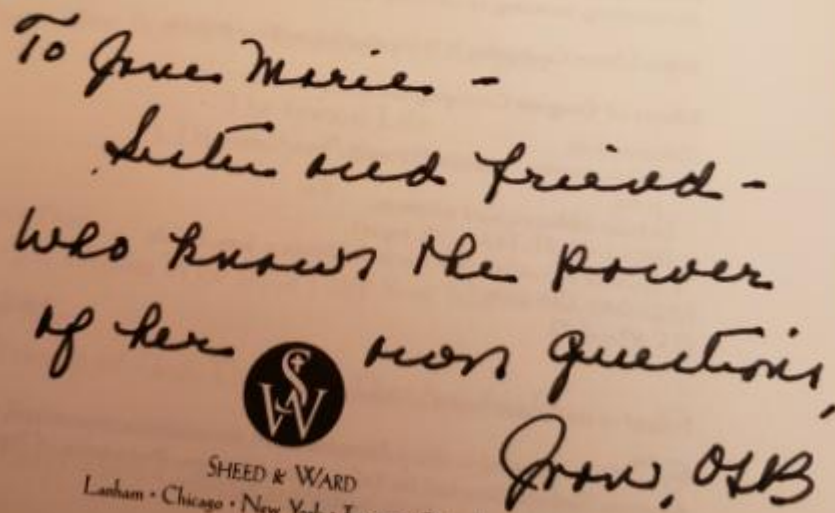 To Jane Marie -
Sister and friend -
who knows the power
of her own questions,
Joan, OSB
SW
SHEED & WARD
Lanham • Chicago • New York •